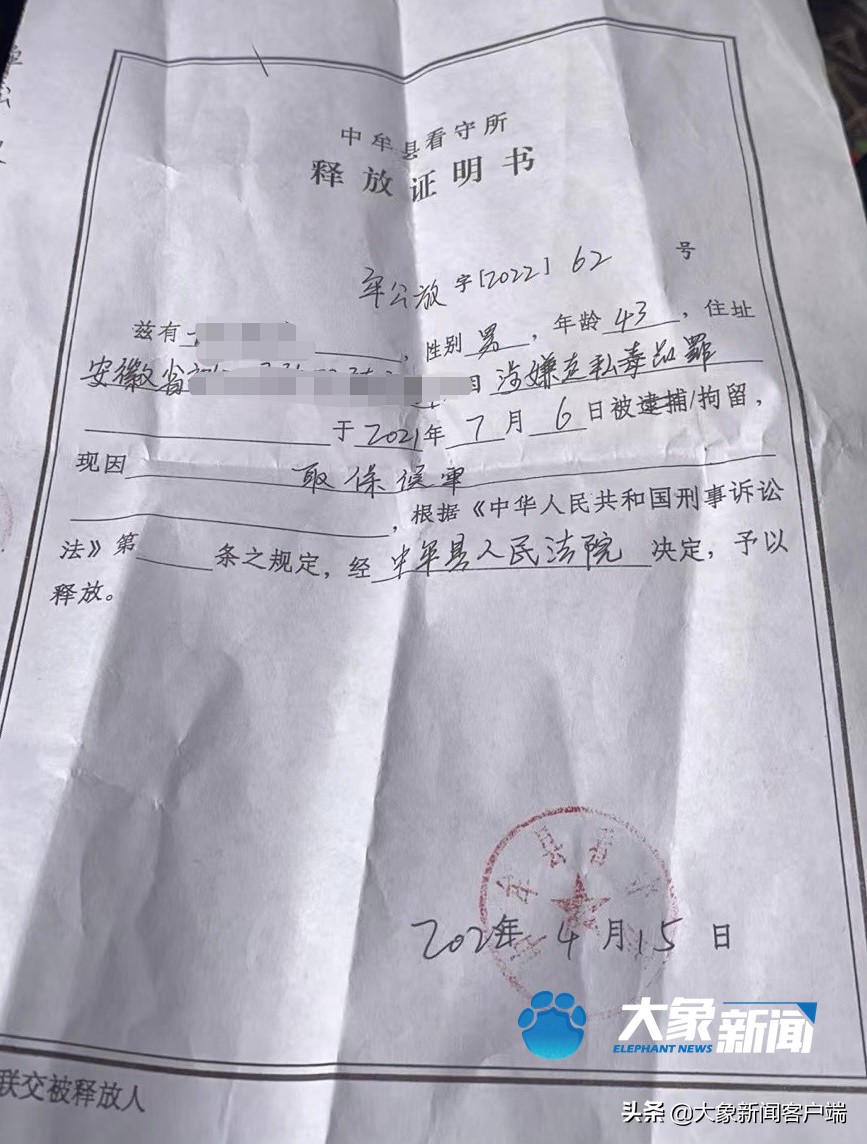 中牟县看守所
释放证明书
牟公放字[2022]62号
兹有，性别男，年龄43，住址
安徽省 涉嫌走私毒品罪
于2021年7月6日被逮捕/拘留，
现因取保侯审
，根据《中华人民共和国刑事诉讼
法》第 条之规定，经中牟县人民法院决定，予以
释放。
牟县看
2022年4月15日
大象新闻
ELEPHANT NEWS
联交被释放人
头条 @大象新闻客户端